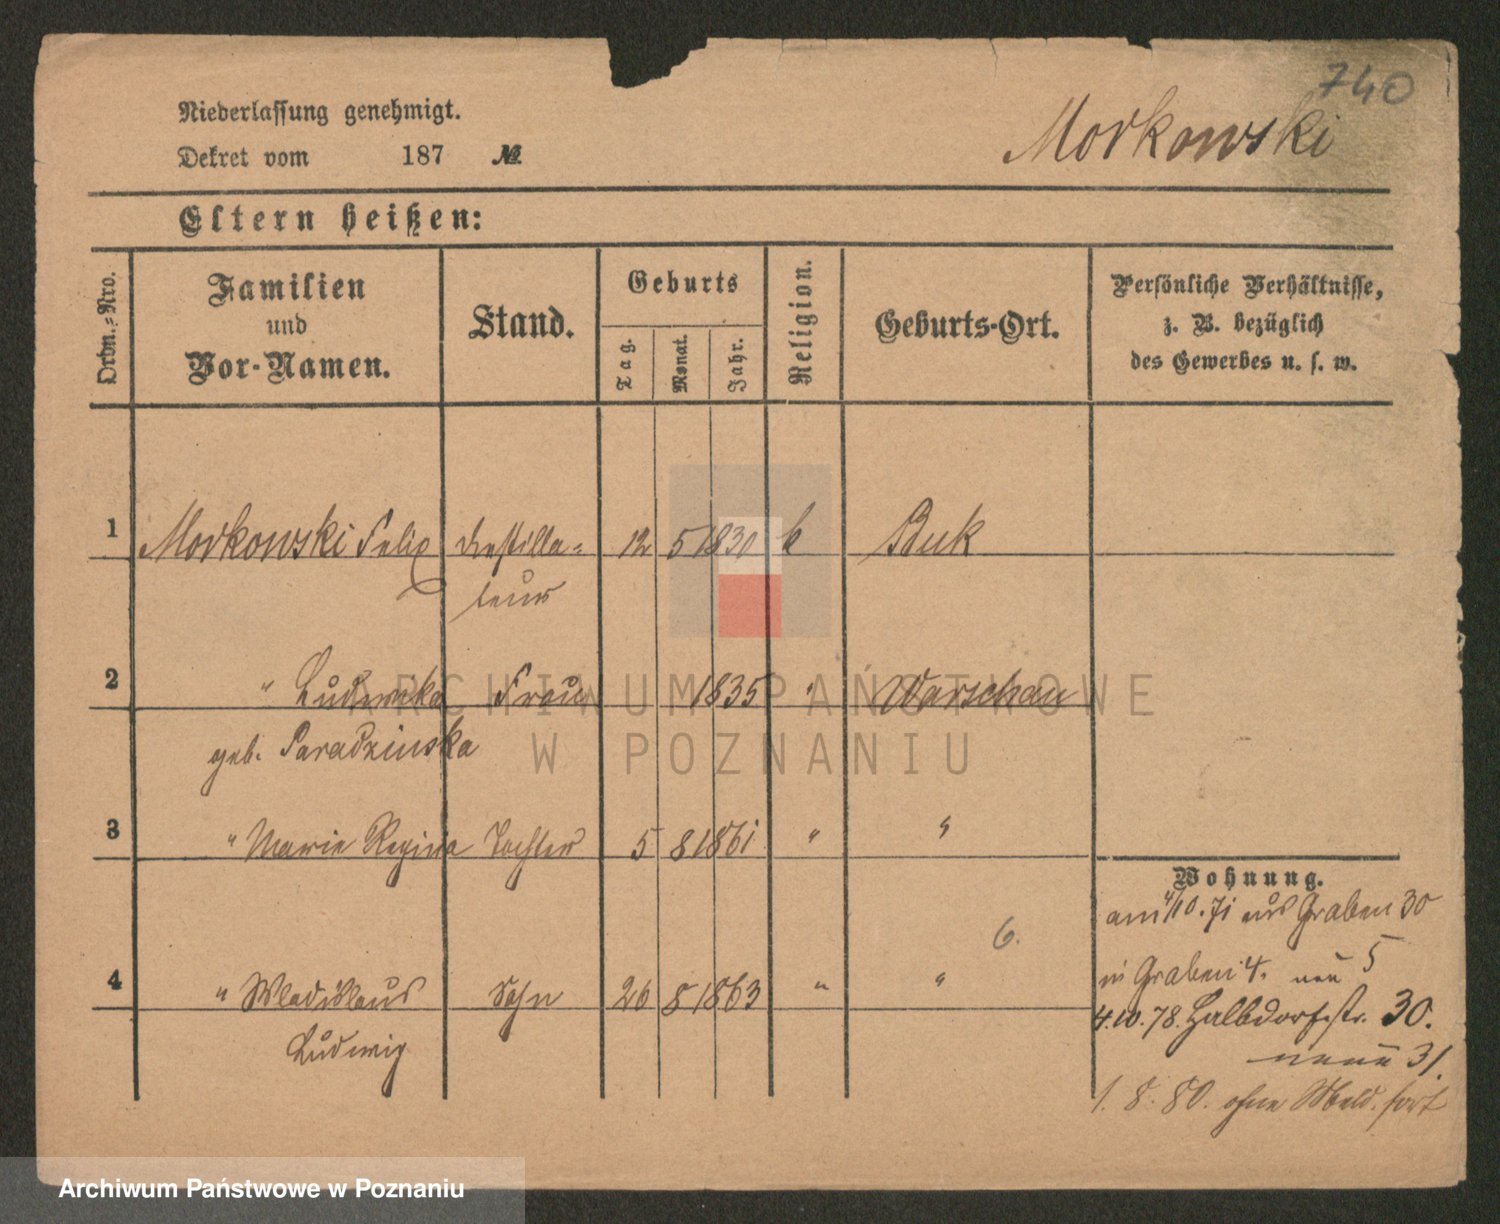 740
Niederlassung genehmigt.
Morkowski
Dekret vom 187 №
Eltern heißen:
Ordn.-Nro.
Familien und Vor-Namen.
Stand.
Geburts
Tag. Monat. Jahr.
Religion.
Geburts-Ort.
Persönliche Verhältnisse,
z. B. bezüglich
des Gewerbes u. s. w.
1 Morkowski Felix Destilla= 12 5 1830 k Buk
teur
2 " Ludowika Frau 1835 " Warschau
geb. Paradzinska
3 " Marie Regina Tochter 5 8 1861 " "
Wohnung.
am 4/10.71 aus Graben 30
6.
in Graben 4. neu 5
4 " Wladislaus Sohn 26 8 1863 " "
4.10.78. Halbdorfstr. 30.
Ludwig
neue 31.
1. 8. 80. ohne Meld. fort
ARCHIWUM PAŃSTWOWE
W POZNANIU
Archiwum Państwowe w Poznaniu